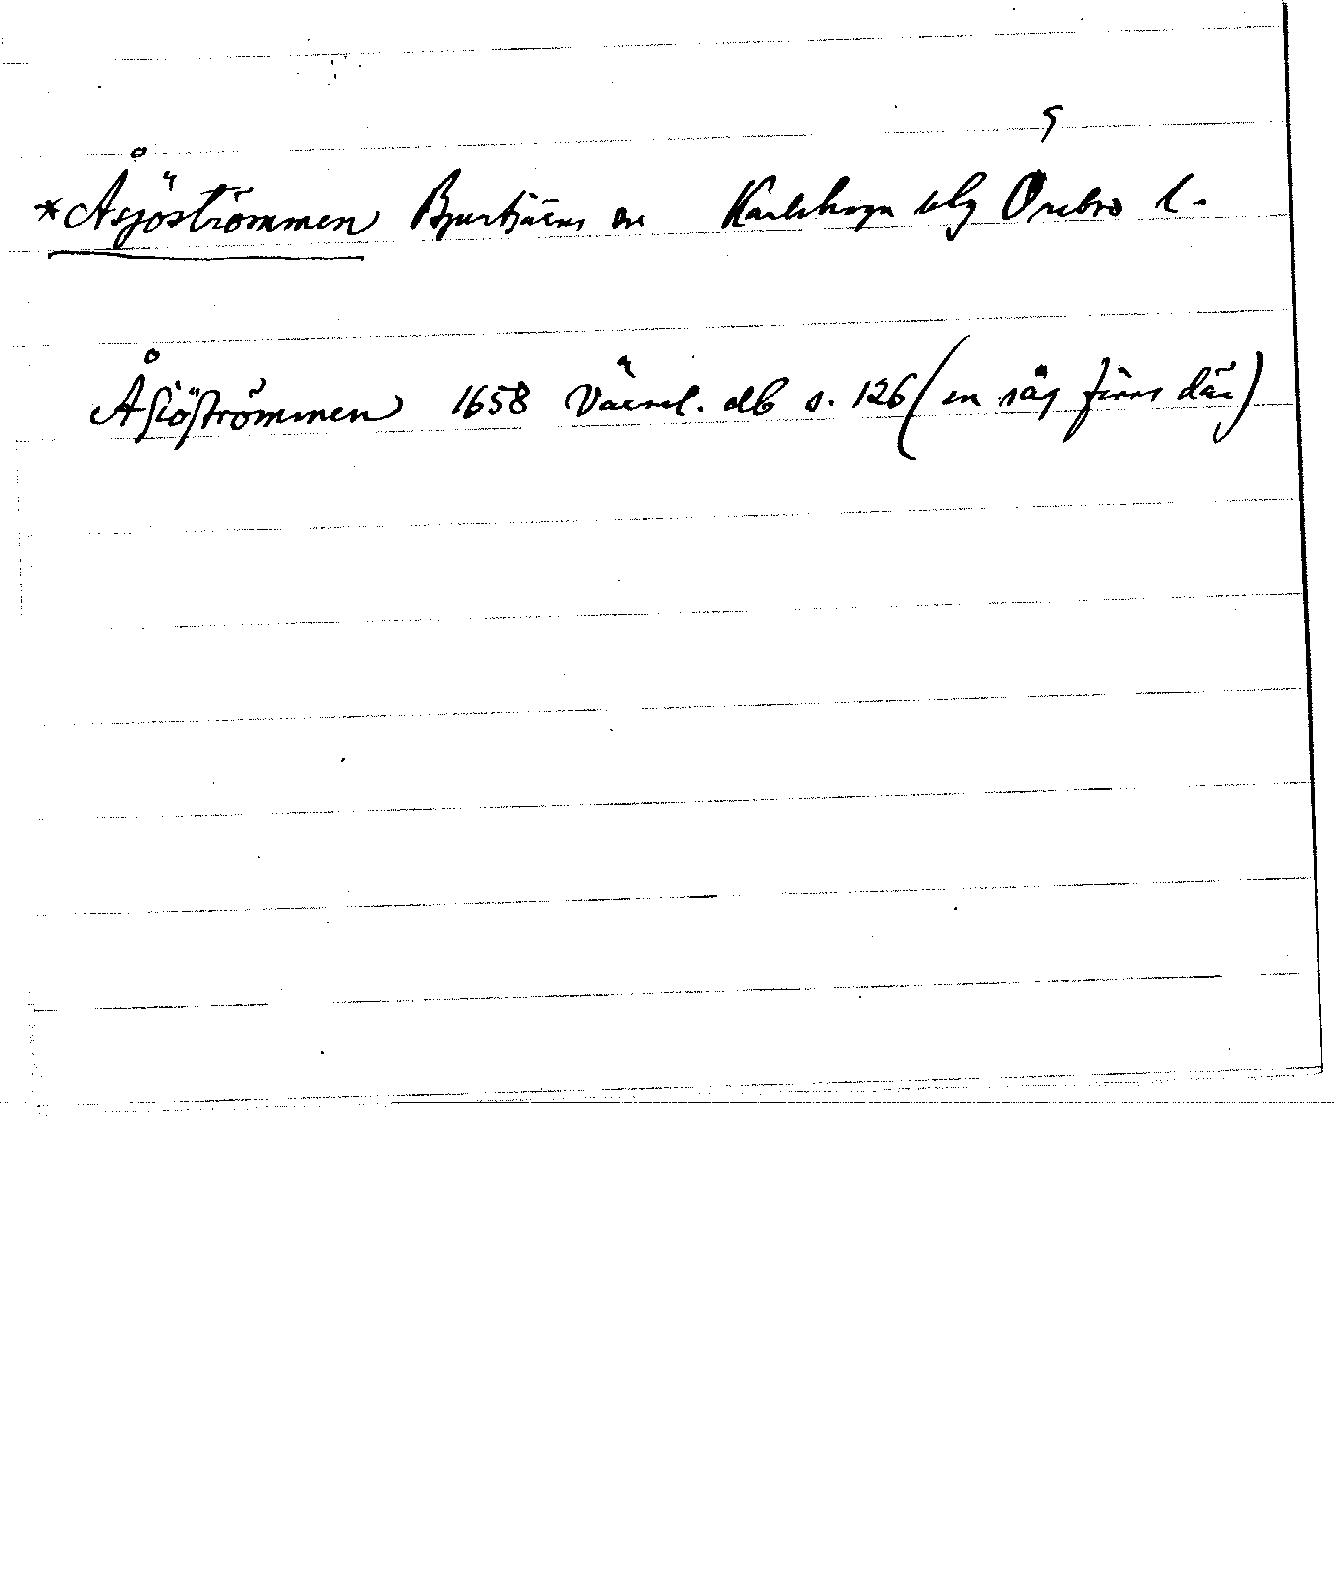 *Åsjöströmmen Bjurtjärns sn Karlskoga blg Örebro l.
Åsiöströmmen 1658 Värml. db s. 126 (en såg finns där)